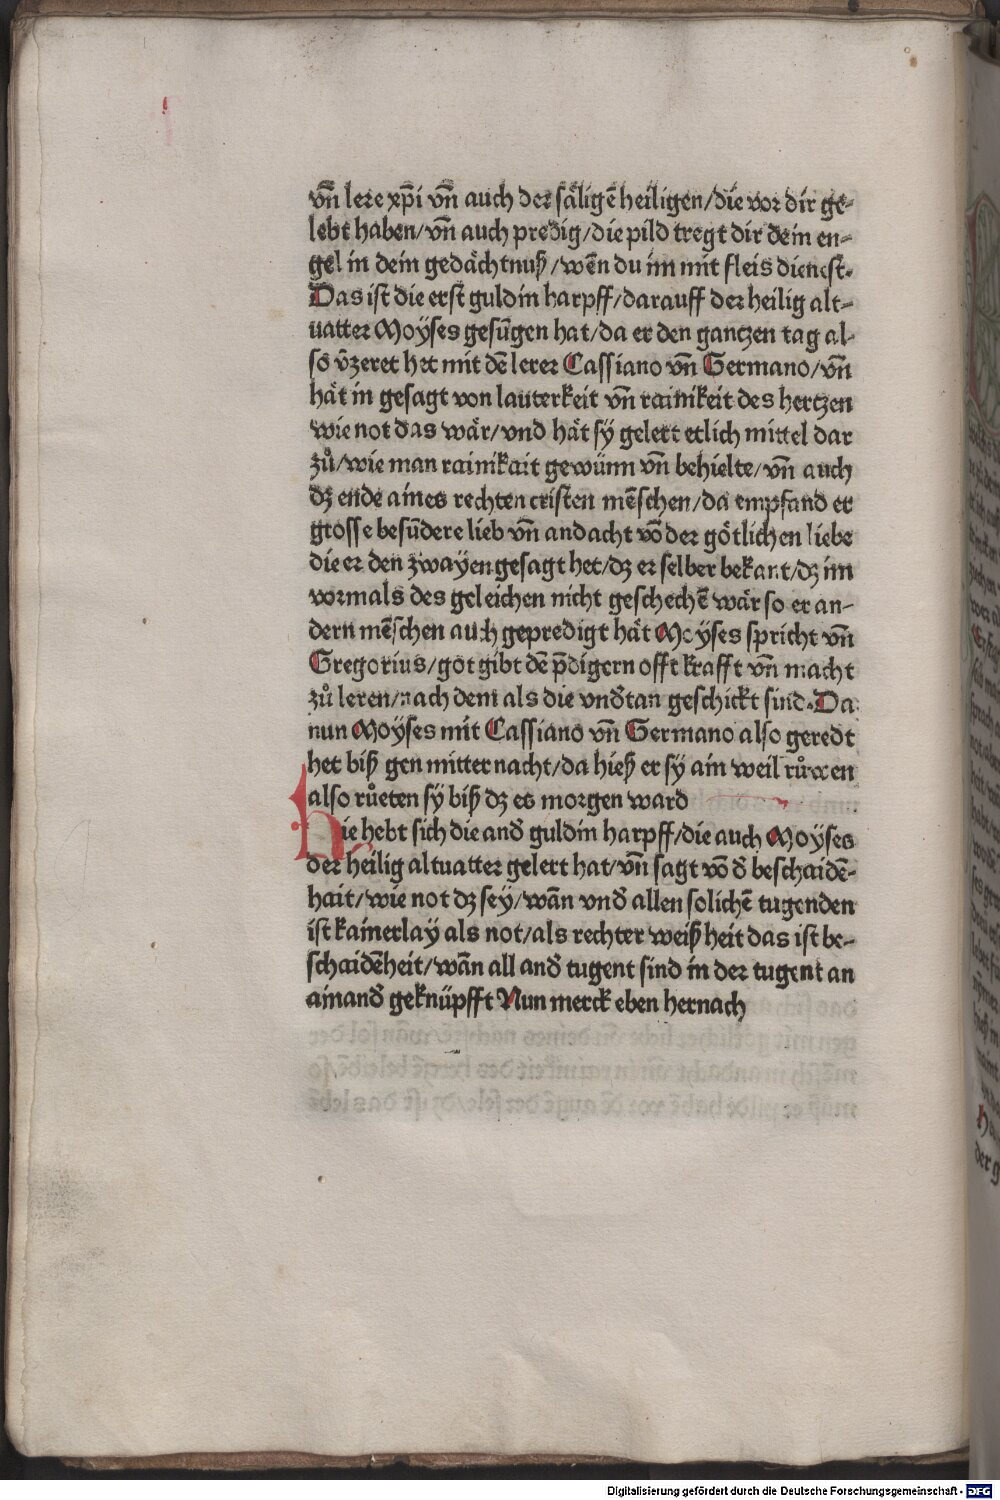 vñ lere xp̄i vñ auch der säligē heiligen/die vor dir ge-
lebt haben/vñ auch predig/die pild tregt dir dein en-
gel in dein gedächtnuß/wēn du im mit fleis dienest.
Das ist die erst guldin harpff/darauff der heilig alt-
uatter Moÿses gesūgen hat/da er den gantzen tag al-
so v̄zeret het mit dē lerer Cassiano vñ Germano/vñ
hät in gesagt von lauterkeit vñ rainikeit des hertzen
wie not das wär/vnd hät sÿ gelert etlich mittel dar
zů/wie man rainikait gewünn vñ behielte/vñ auch
dz ende aines rechten cristen mēschen/da empfand er
grosse besūdere lieb vñ andacht vō der götlichen liebe
die er den zwaÿen gesagt het/dz er selber bekant/dz im
vormals des geleichen nicht geschechē wär so er an-
dern mēschen auch gepredigt hät Moÿses spricht vñ
Gregorius/got gibt dē p̄digern offt krafft vñ macht
zů leren/nach dem als die vnd̄tan geschickt sind.Da
nun Moÿses mit Cassiano vñ Germano also geredt
het biß gen mitternacht/da hieß er sÿ ain weil růwen
also růeten sÿ biß dz es morgen ward
Hie hebt sich die and̄ guldin harpff/die auch Moÿses
der heilig altuatter gelert hat/vñ sagt vō d̄ beschaidē-
hait/wie not dz seÿ/wān vnd̄ allen solichē tugenden
ist kainerlaÿ als not/als rechter weißheit das ist be-
schaidēheit/wān all and̄ tugent sind in der tugent an
ainand̄ geknüpfft Nun merck eben hernach
Digitalisierung gefördert durch die Deutsche Forschungsgemeinschaft - DFG